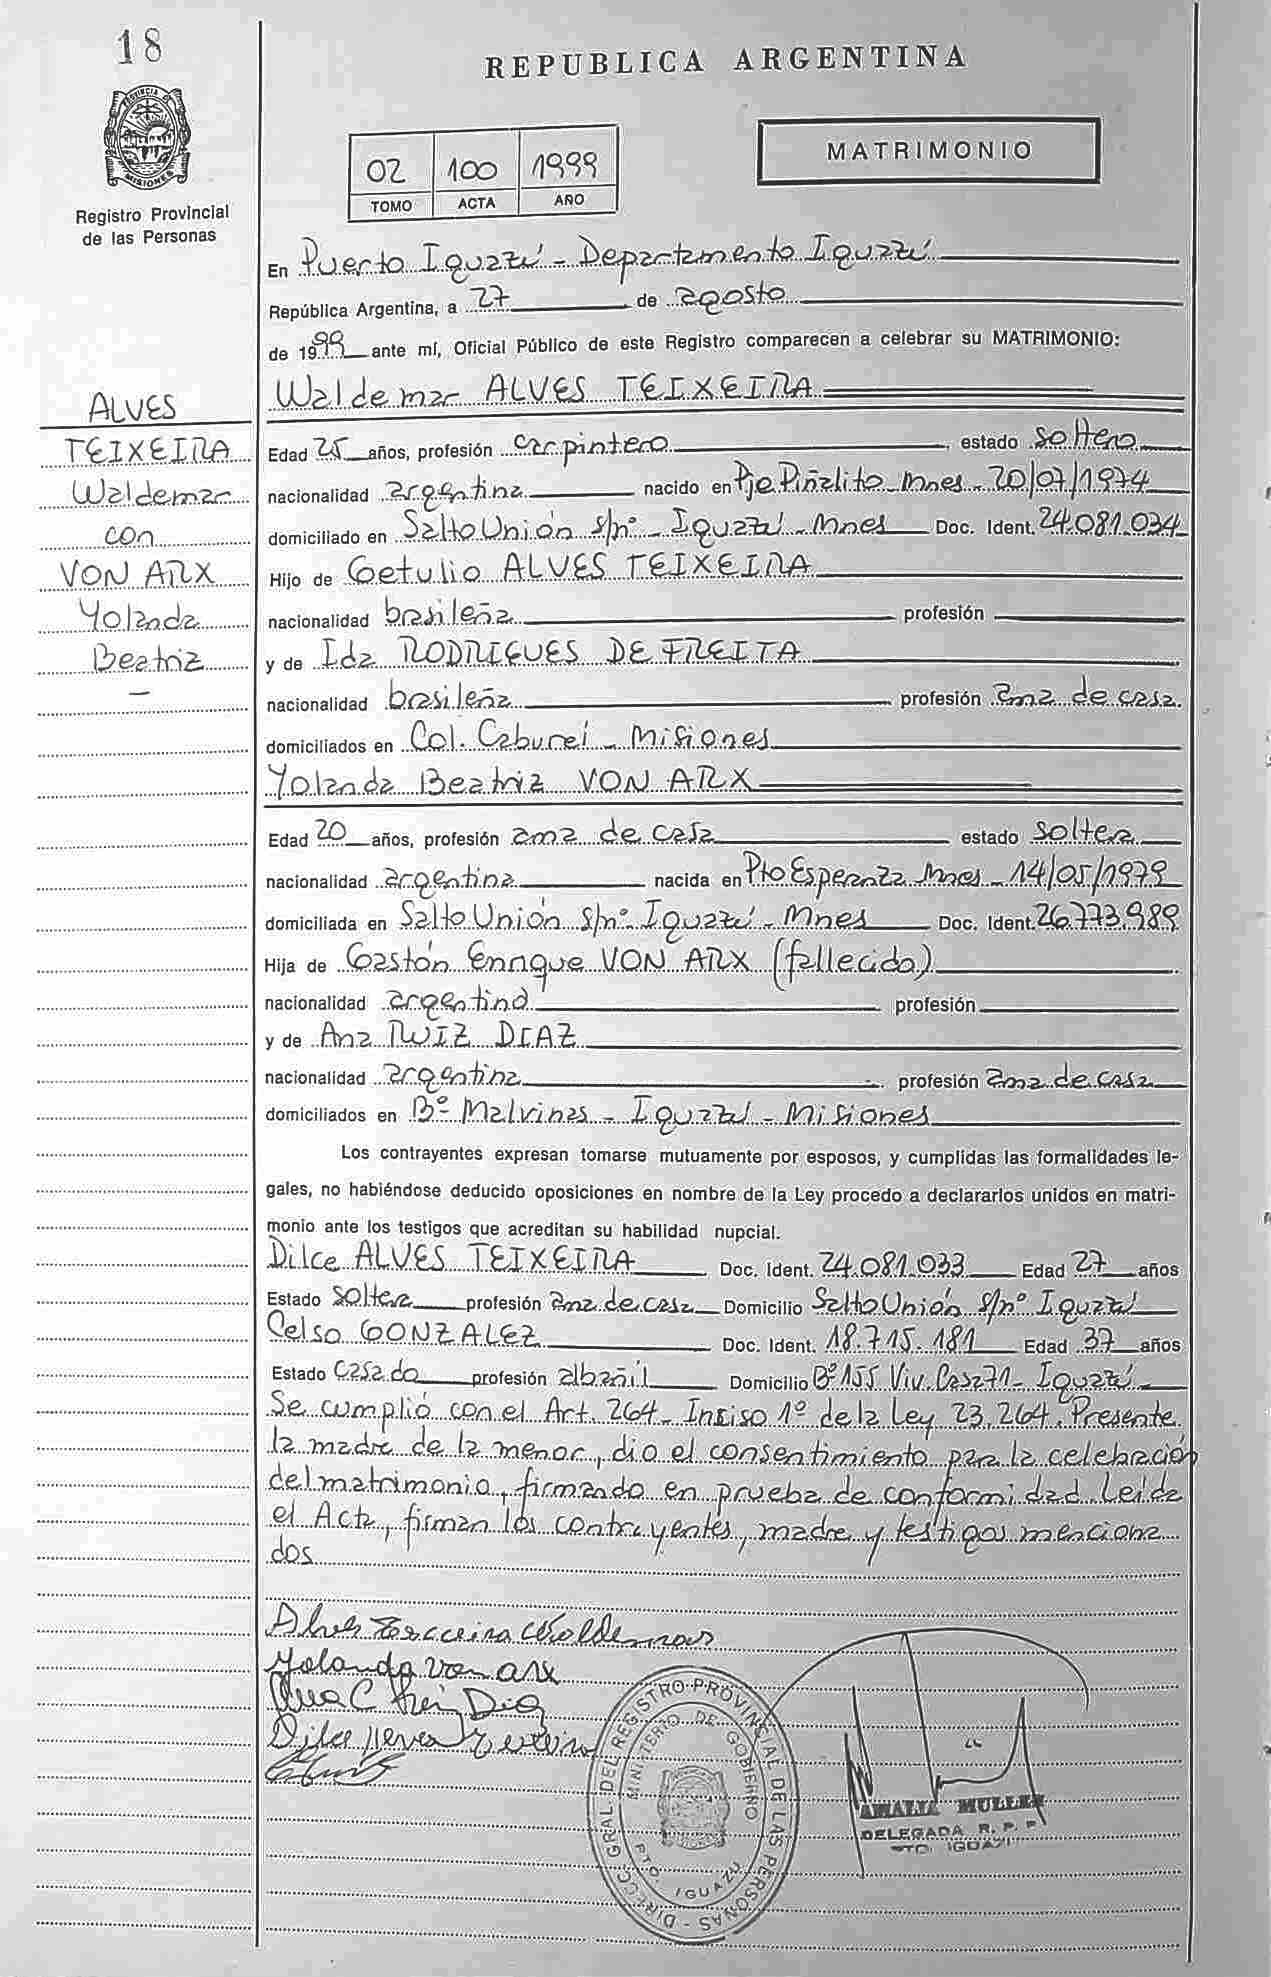 18
REPUBLICA ARGENTINA
PROVINCIA DE
MISIONES
Registro Provincial
de las Personas
MATRIMONIO
02 100 1999
TOMO ACTA AÑO
En Puerto Iguazú - Departamento Iguazú
República Argentina, a 27 de agosto
de 1999 ante mí, Oficial Público de este Registro comparecen a celebrar su MATRIMONIO:
Waldemar ALVES TEIXEIRA
ALVES
TEIXEIRA
Waldemar
con
VON ARX
Yolanda
Beatriz
—
Edad 25 años, profesión carpintero estado soltero
nacionalidad argentina nacido en Pje Piñalito Mnes - 20/07/1974
domiciliado en Salto Unión s/nº - Iguazú - Mnes Doc. Ident. 24.081.034
Hijo de Getulio ALVES TEIXEIRA
nacionalidad brasileña profesión
y de Ida RODRIGUES DE FREITA
nacionalidad brasileña profesión ama de casa
domiciliados en Col. Caburei - Misiones
Yolanda Beatriz VON ARX
Edad 20 años, profesión ama de casa estado soltera
nacionalidad argentina nacida en Pto Esperanza Mnes - 14/05/1979
domiciliada en Salto Unión s/nº - Iguazú - Mnes Doc. Ident. 26.773.989
Hija de Gastón Enrique VON ARX (fallecido)
nacionalidad argentino profesión
y de Ana RUIZ DIAZ
nacionalidad argentina profesión ama de casa
domiciliados en Bº Malvinas - Iguazú - Misiones
Los contrayentes expresan tomarse mutuamente por esposos, y cumplidas las formalidades le-
gales, no habiéndose deducido oposiciones en nombre de la Ley procedo a declararlos unidos en matri-
monio ante los testigos que acreditan su habilidad nupcial.
Dilce ALVES TEIXEIRA Doc. Ident. 24.081.033 Edad 27 años
Estado soltera profesión ama de casa Domicilio Salto Unión s/nº Iguazú
Celso GONZALEZ Doc. Ident. 18.715.181 Edad 37 años
Estado casado profesión albañil Domicilio Bº 155 Viv. Casa 71 - Iguazú
Se cumplió con el Art. 264 - Inciso 1º de la Ley 23.264. Presente
la madre de la menor, dio el consentimiento para la celebración
del matrimonio, firmando en prueba de conformidad. Leida
el Acta, firman los contrayentes, madre y testigos menciona
dos
Alves Teixeira Waldemar
Yolanda Von Arx
Ana C Ruiz Diaz
Dilce Alves Teixeira
DIRECC. GRAL. DEL REGISTRO PROVINCIAL DE LAS PERSONAS -
MINISTERIO DE GOBIERNO
PTO. IGUAZU
AMALIA MULLER
DELEGADA R. P. P.
PTO. IGUAZU